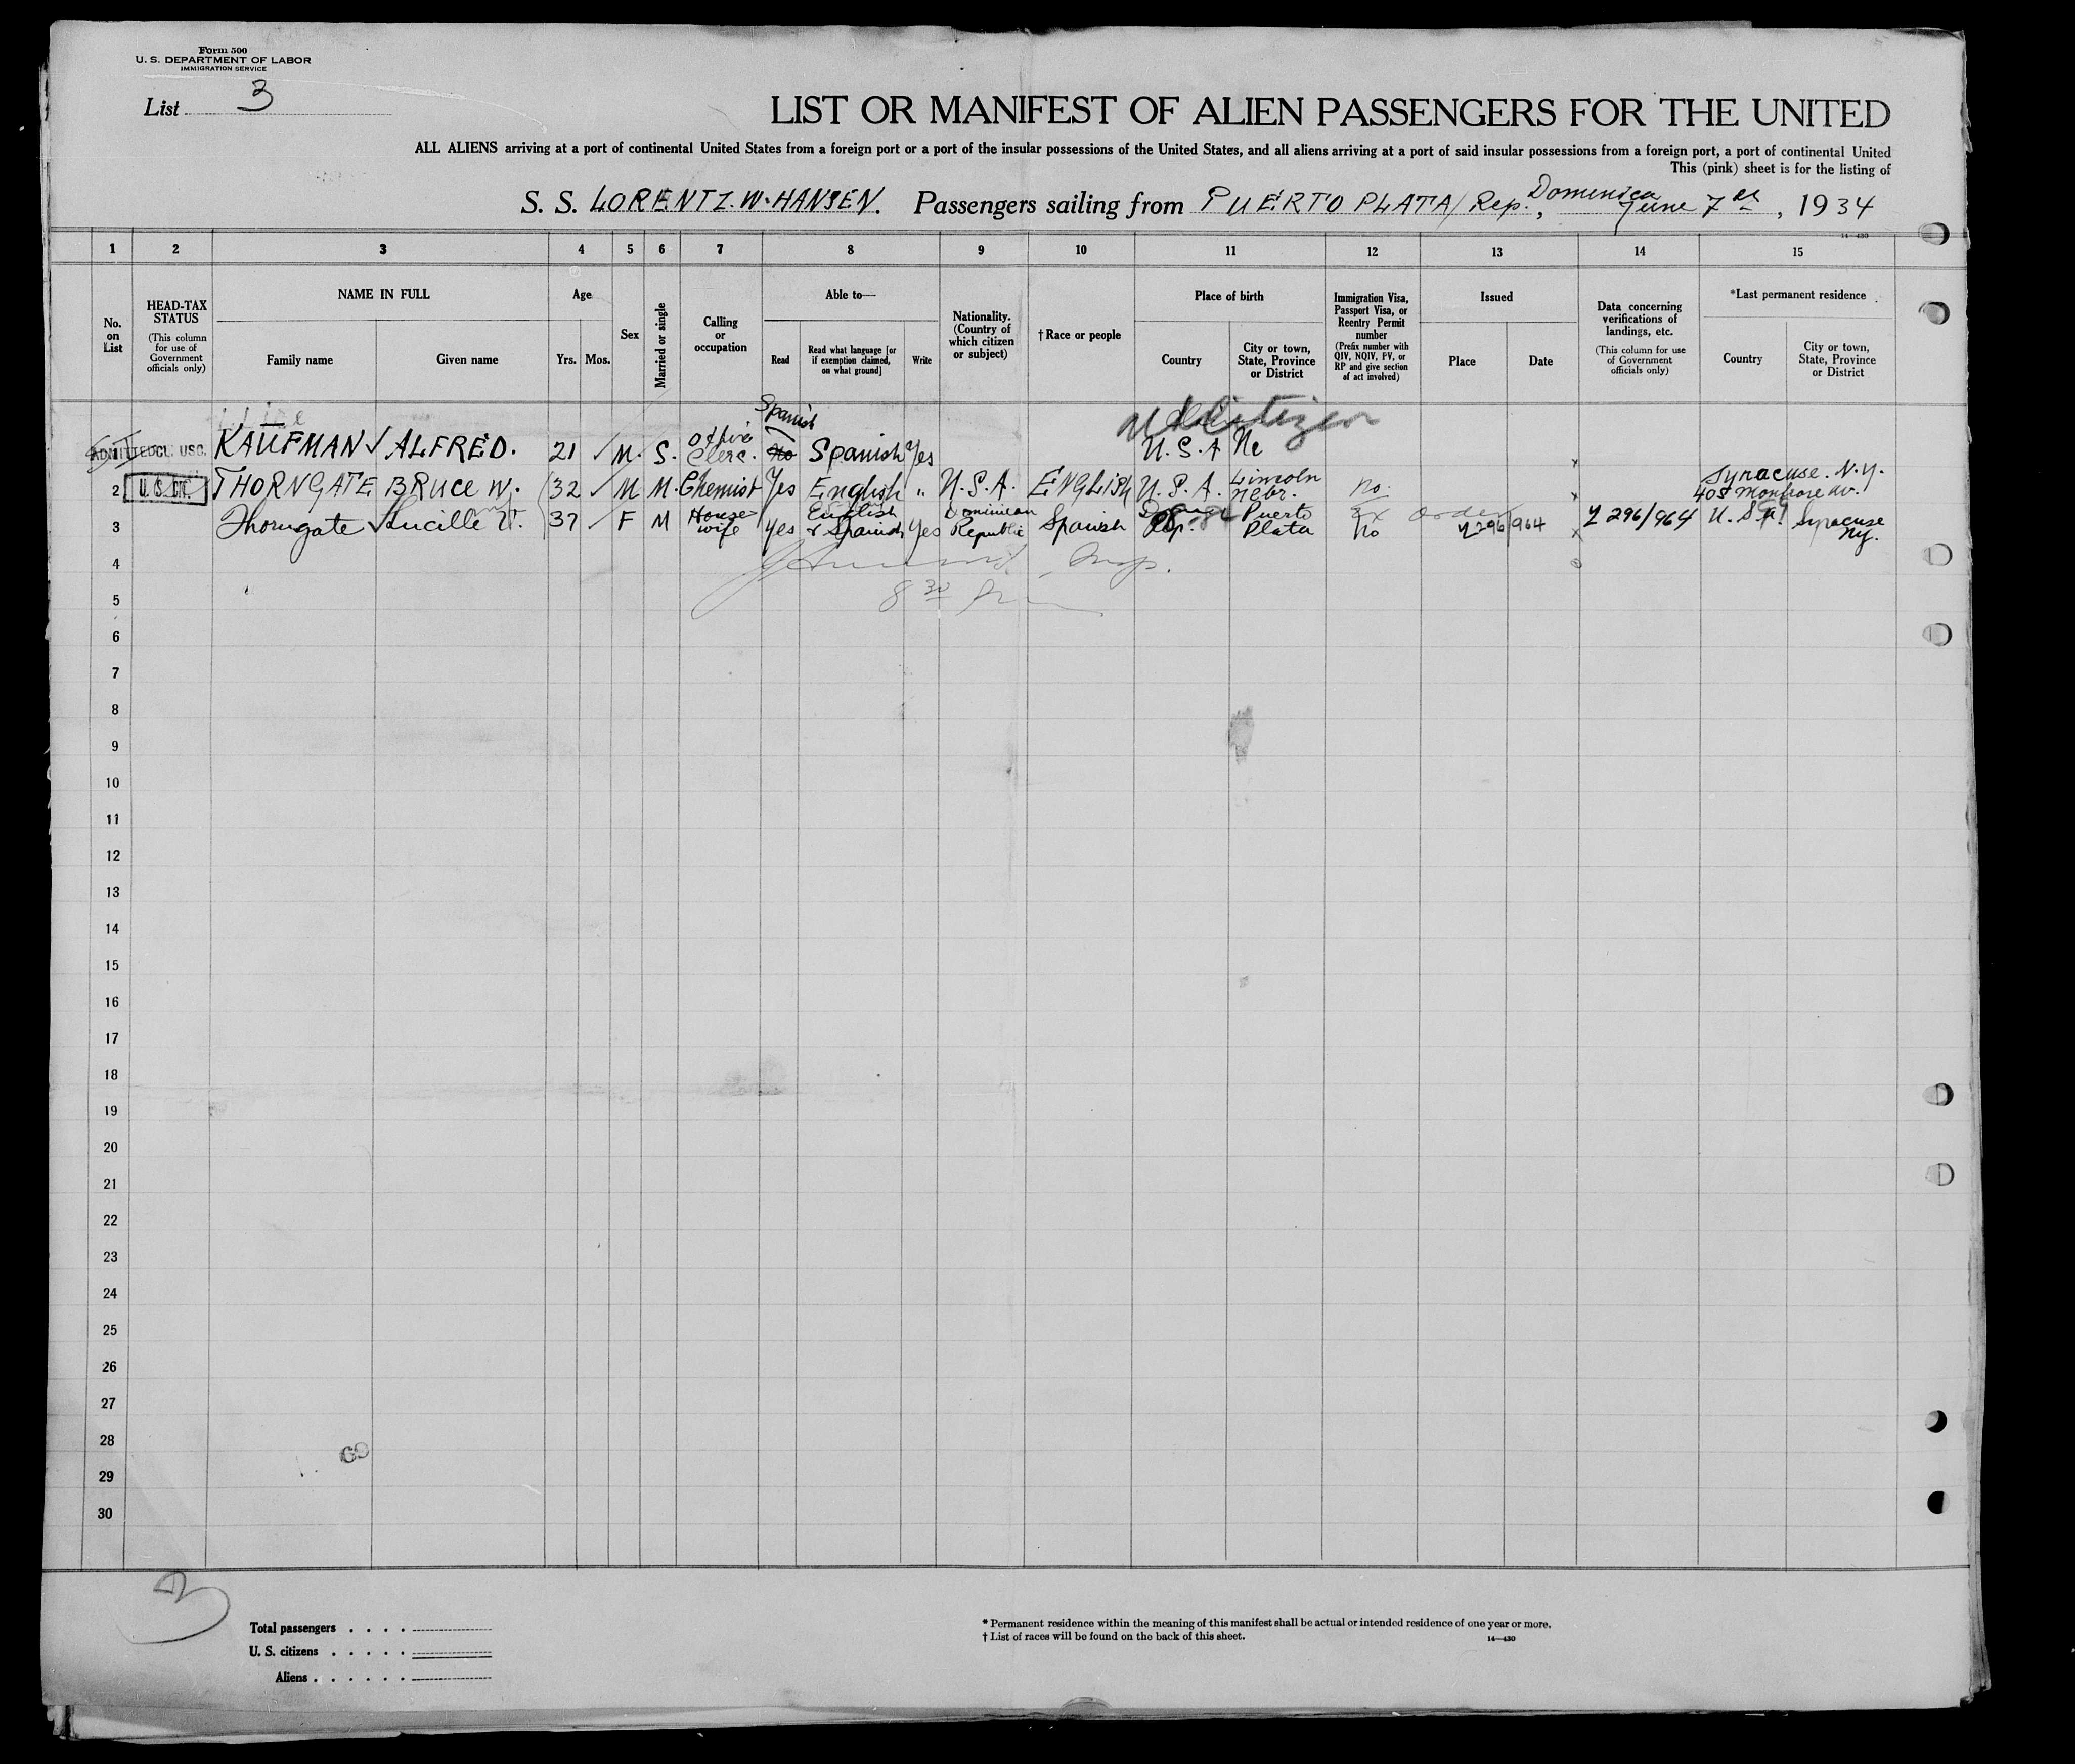 Form 500
U. S. DEPARTMENT OF LABOR
IMMIGRATION SERVICE
List 3
LIST OR MANIFEST OF ALIEN PASSENGERS FOR THE UNITED
ALL ALIENS arriving at a port of continental United States from a foreign port or a port of the insular possessions of the United States, and all aliens arriving at a port of said insular possessions from a foreign port, a port of continental United
This (pink) sheet is for the listing of
S. S. LORENTZ. W. HANSEN. Passengers sailing from PUERTO PLATA / Rep. Domenica, June 7, 1934
14—430
1 2 3 4 5 6 7 8 9 10 11 12 13 14 15
No. on List
HEAD-TAX STATUS
(This column for use of Government officials only)
NAME IN FULL
Family name
Given name
Age
Yrs.
Mos.
Sex
Married or single
Calling or occupation
Able to—
Read
Read what language [or if exemption claimed, on what ground]
Write
Nationality. (Country of which citizen or subject)
† Race or people
Place of birth
Country
City or town, State, Province or District
Immigration Visa, Passport Visa, or Reentry Permit number
(Prefix number with QIV, NQIV, PV, or RP and give section of act involved)
Issued
Place
Date
Data concerning verifications of landings, etc.
(This column for use of Government officials only)
*Last permanent residence
Country
City or town, State, Province or District
Citizen
KAUFMAN ALFRED. 21 M. S. Clerc. Spanish no Spanish Yes U.S.A
2 U. S. CIT. THORNGATE BRUCE W. 32 M M. Chemist Yes English " U.S.A. ENGLISH U.S.A. Lincoln Nebr. no. Syracuse. N.Y. 405 Montrose av.
3 Thorngate Lucille V. 37 F M House wife Yes English & Spanish Yes Dominican Republic Spanish Rep. Puerto Plata no order 296/964 296/964 U.S.A. Syracuse Ny.
4
8 30
5
6
7
8
9
10
11
12
13
14
15
16
17
18
19
20
21
22
23
24
25
26
27
28
29
30
3
Total passengers
U. S. citizens
Aliens
* Permanent residence within the meaning of this manifest shall be actual or intended residence of one year or more.
† List of races will be found on the back of this sheet.
14—430